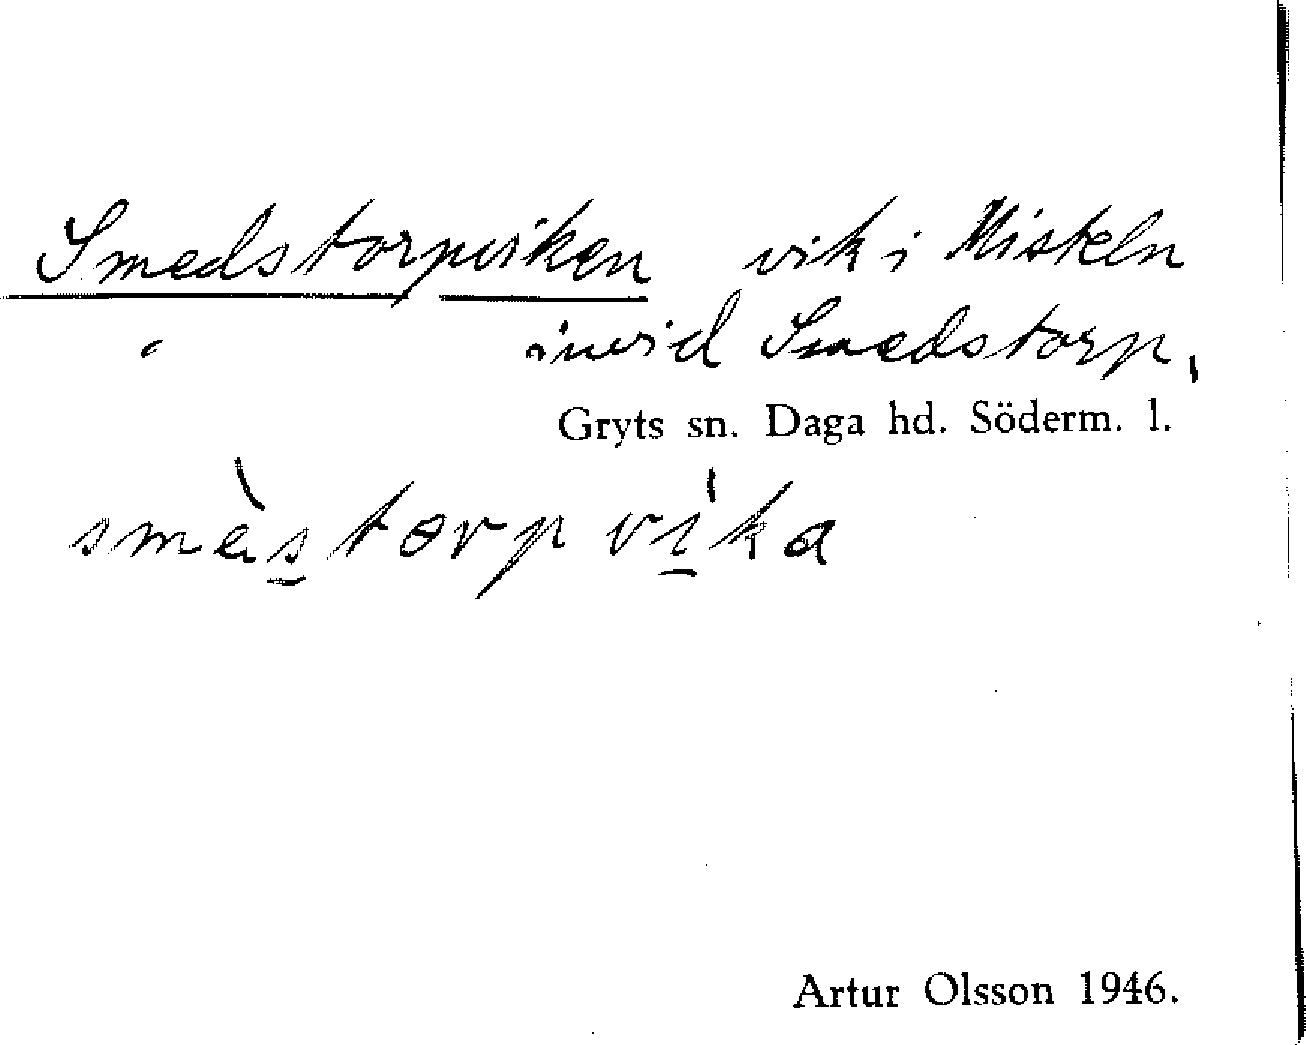 Smedstorpviken vik i Misteln
invid Smedstorp,
Gryts sn. Daga hd. Söderm. l.
smès̲torpvi̲'ka
Artur Olsson 1946.